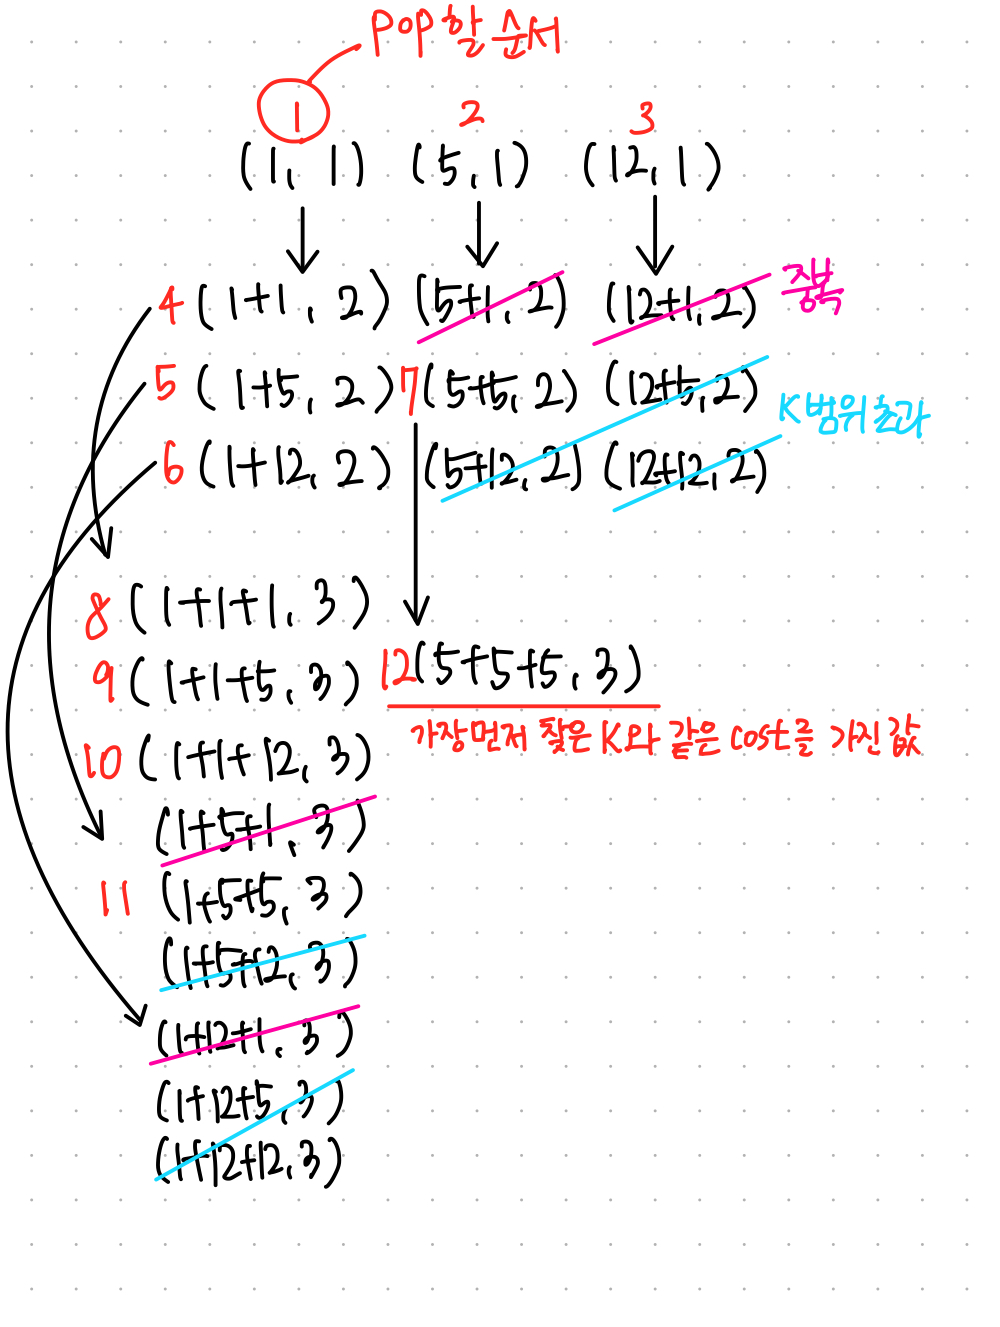 pop할 순서
1 2 3
(1, 1) (5, 1) (12, 1)
4 (1+1, 2) (5+1, 2) (12+1, 2) 중복
5 (1+5, 2) 7 (5+5, 2) (12+5, 2) K범위초과
6 (1+12, 2) (5+12, 2) (12+12, 2)
8 (1+1+1, 3)
9 (1+1+5, 3) 12 (5+5+5, 3)
10 (1+1+12, 3) 가장먼저 찾은 K와 같은 cost를 가진 값
(1+5+1, 3)
11 (1+5+5, 3)
(1+5+12, 3)
(1+12+1, 3)
(1+12+5, 3)
(1+12+12, 3)